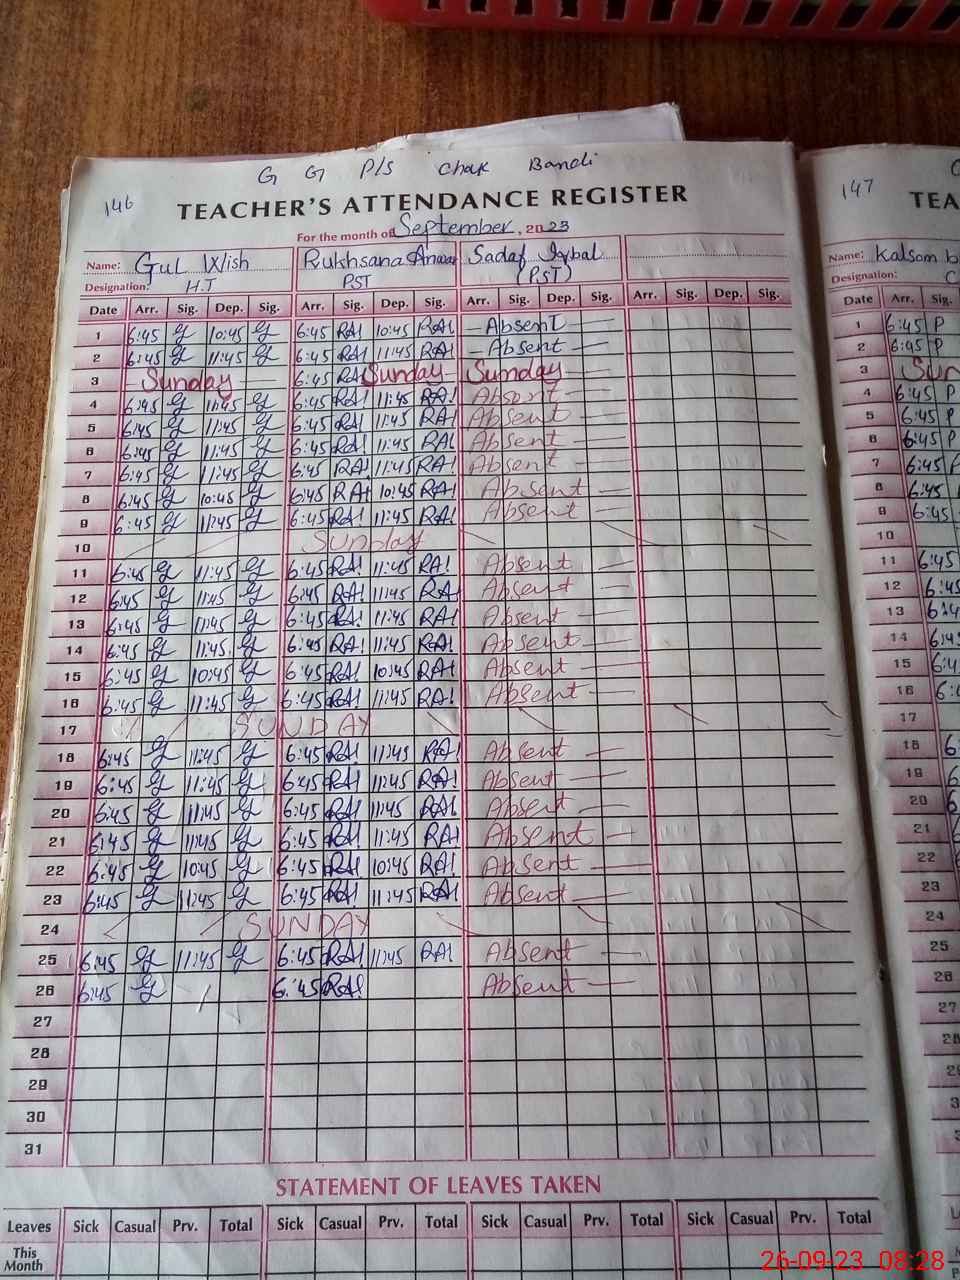 G G P/S Chak Bandi
146
TEACHER'S ATTENDANCE REGISTER
For the month of September, 2023
Name: Gul Wish Rukhsana Anwar Sadaf Iqbal
Designation: H.T PST (PST)
Date Arr. Sig. Dep. Sig. Arr. Sig. Dep. Sig. Arr. Sig. Dep. Sig. Arr. Sig. Dep. Sig.
1 6:45 G 10:45 G 6:45 RA! 10:45 RA! Absent
2 6:45 G 11:45 G 6:45 RA! 11:45 RA! Absent
3 Sunday 6:45 RA! Sunday Sunday
4 6:45 G 11:45 G 6:45 RA! 11:45 RA! Absent
5 6:45 G 11:45 G 6:45 RA! 11:45 RA! Absent
6 6:45 G 11:45 G 6:45 RA! 11:45 RA! Absent
7 6:45 G 11:45 G 6:45 RA! 11:45 RA! Absent
8 6:45 G 10:45 G 6:45 RA! 10:45 RA! Absent
9 6:45 G 11:45 G 6:45 RA! 11:45 RA! Absent
10 Sunday
11 6:45 G 11:45 G 6:45 RA! 11:45 RA! Absent
12 6:45 G 11:45 G 6:45 RA! 11:45 RA! Absent
13 6:45 G 11:45 G 6:45 RA! 11:45 RA! Absent
14 6:45 G 11:45 G 6:45 RA! 11:45 RA! Absent
15 6:45 G 10:45 G 6:45 RA! 10:45 RA! Absent
16 6:45 G 11:45 G 6:45 RA! 11:45 RA! Absent
17 SUNDAY
18 6:45 G 11:45 G 6:45 RA! 11:45 RA! Absent
19 6:45 G 11:45 G 6:45 RA! 11:45 RA! Absent
20 6:45 G 11:45 G 6:45 RA! 11:45 RA! Absent
21 6:45 G 11:45 G 6:45 RA! 11:45 RA! Absent
22 6:45 G 10:45 G 6:45 RA! 10:45 RA! Absent
23 6:45 G 11:45 G 6:45 RA! 11:45 RA! Absent
24 SUNDAY
25 6:45 G 11:45 G 6:45 RA! 11:45 RA! Absent
26 6:45 G 6:45 RA! Absent
27
28
29
30
31
STATEMENT OF LEAVES TAKEN
Leaves Sick Casual Prv. Total Sick Casual Prv. Total Sick Casual Prv. Total Sick Casual Prv. Total
This Month
147
TEA
Name: Kalsom b
Designation: C
Date Arr. Sig.
1 6:45 P
2 6:45 P
3 Sun
4 6:45 P
5 6:45 P
6 6:45 P
7 6:45
8 6:45
9 6:45
10
11 6:45
12 6:45
13 6:4
14 6:4
15 6:4
16 6:
17
18 6:
19
20
21
22
23
24
25
26
27
26-09-23 08:28